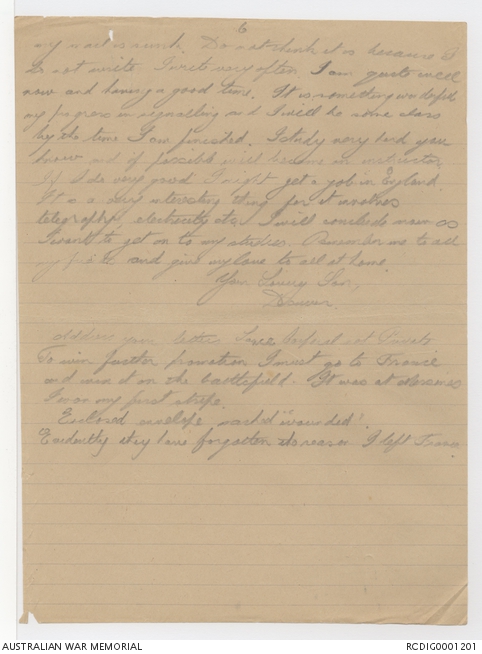 6
my mail is much. Do not think it is because I
do not write. I write very often. I am quite well
now and having a good time. It is something wonderful
my progress in signalling and I will be some class
by the time I am finished. I study very hard you
know and if possible will become an instructor.
If I do very good I might get a job in England.
It is a very interesting thing for it involves
telegraphy electricity etc. I will conclude now as
I want to get on to my studies. Remember me to all
my friends and give my love to all at home.
Your Loving Son,
Address your letter Lance Corporal not Private
To win further promotion I must go to France
and win it on the battlefield. It was at
I won my first stripe.
Enclosed envelope marked "wounded".
Evidently they have forgotten the reason I left France.
AUSTRALIAN WAR MEMORIAL
RCDIG0001201